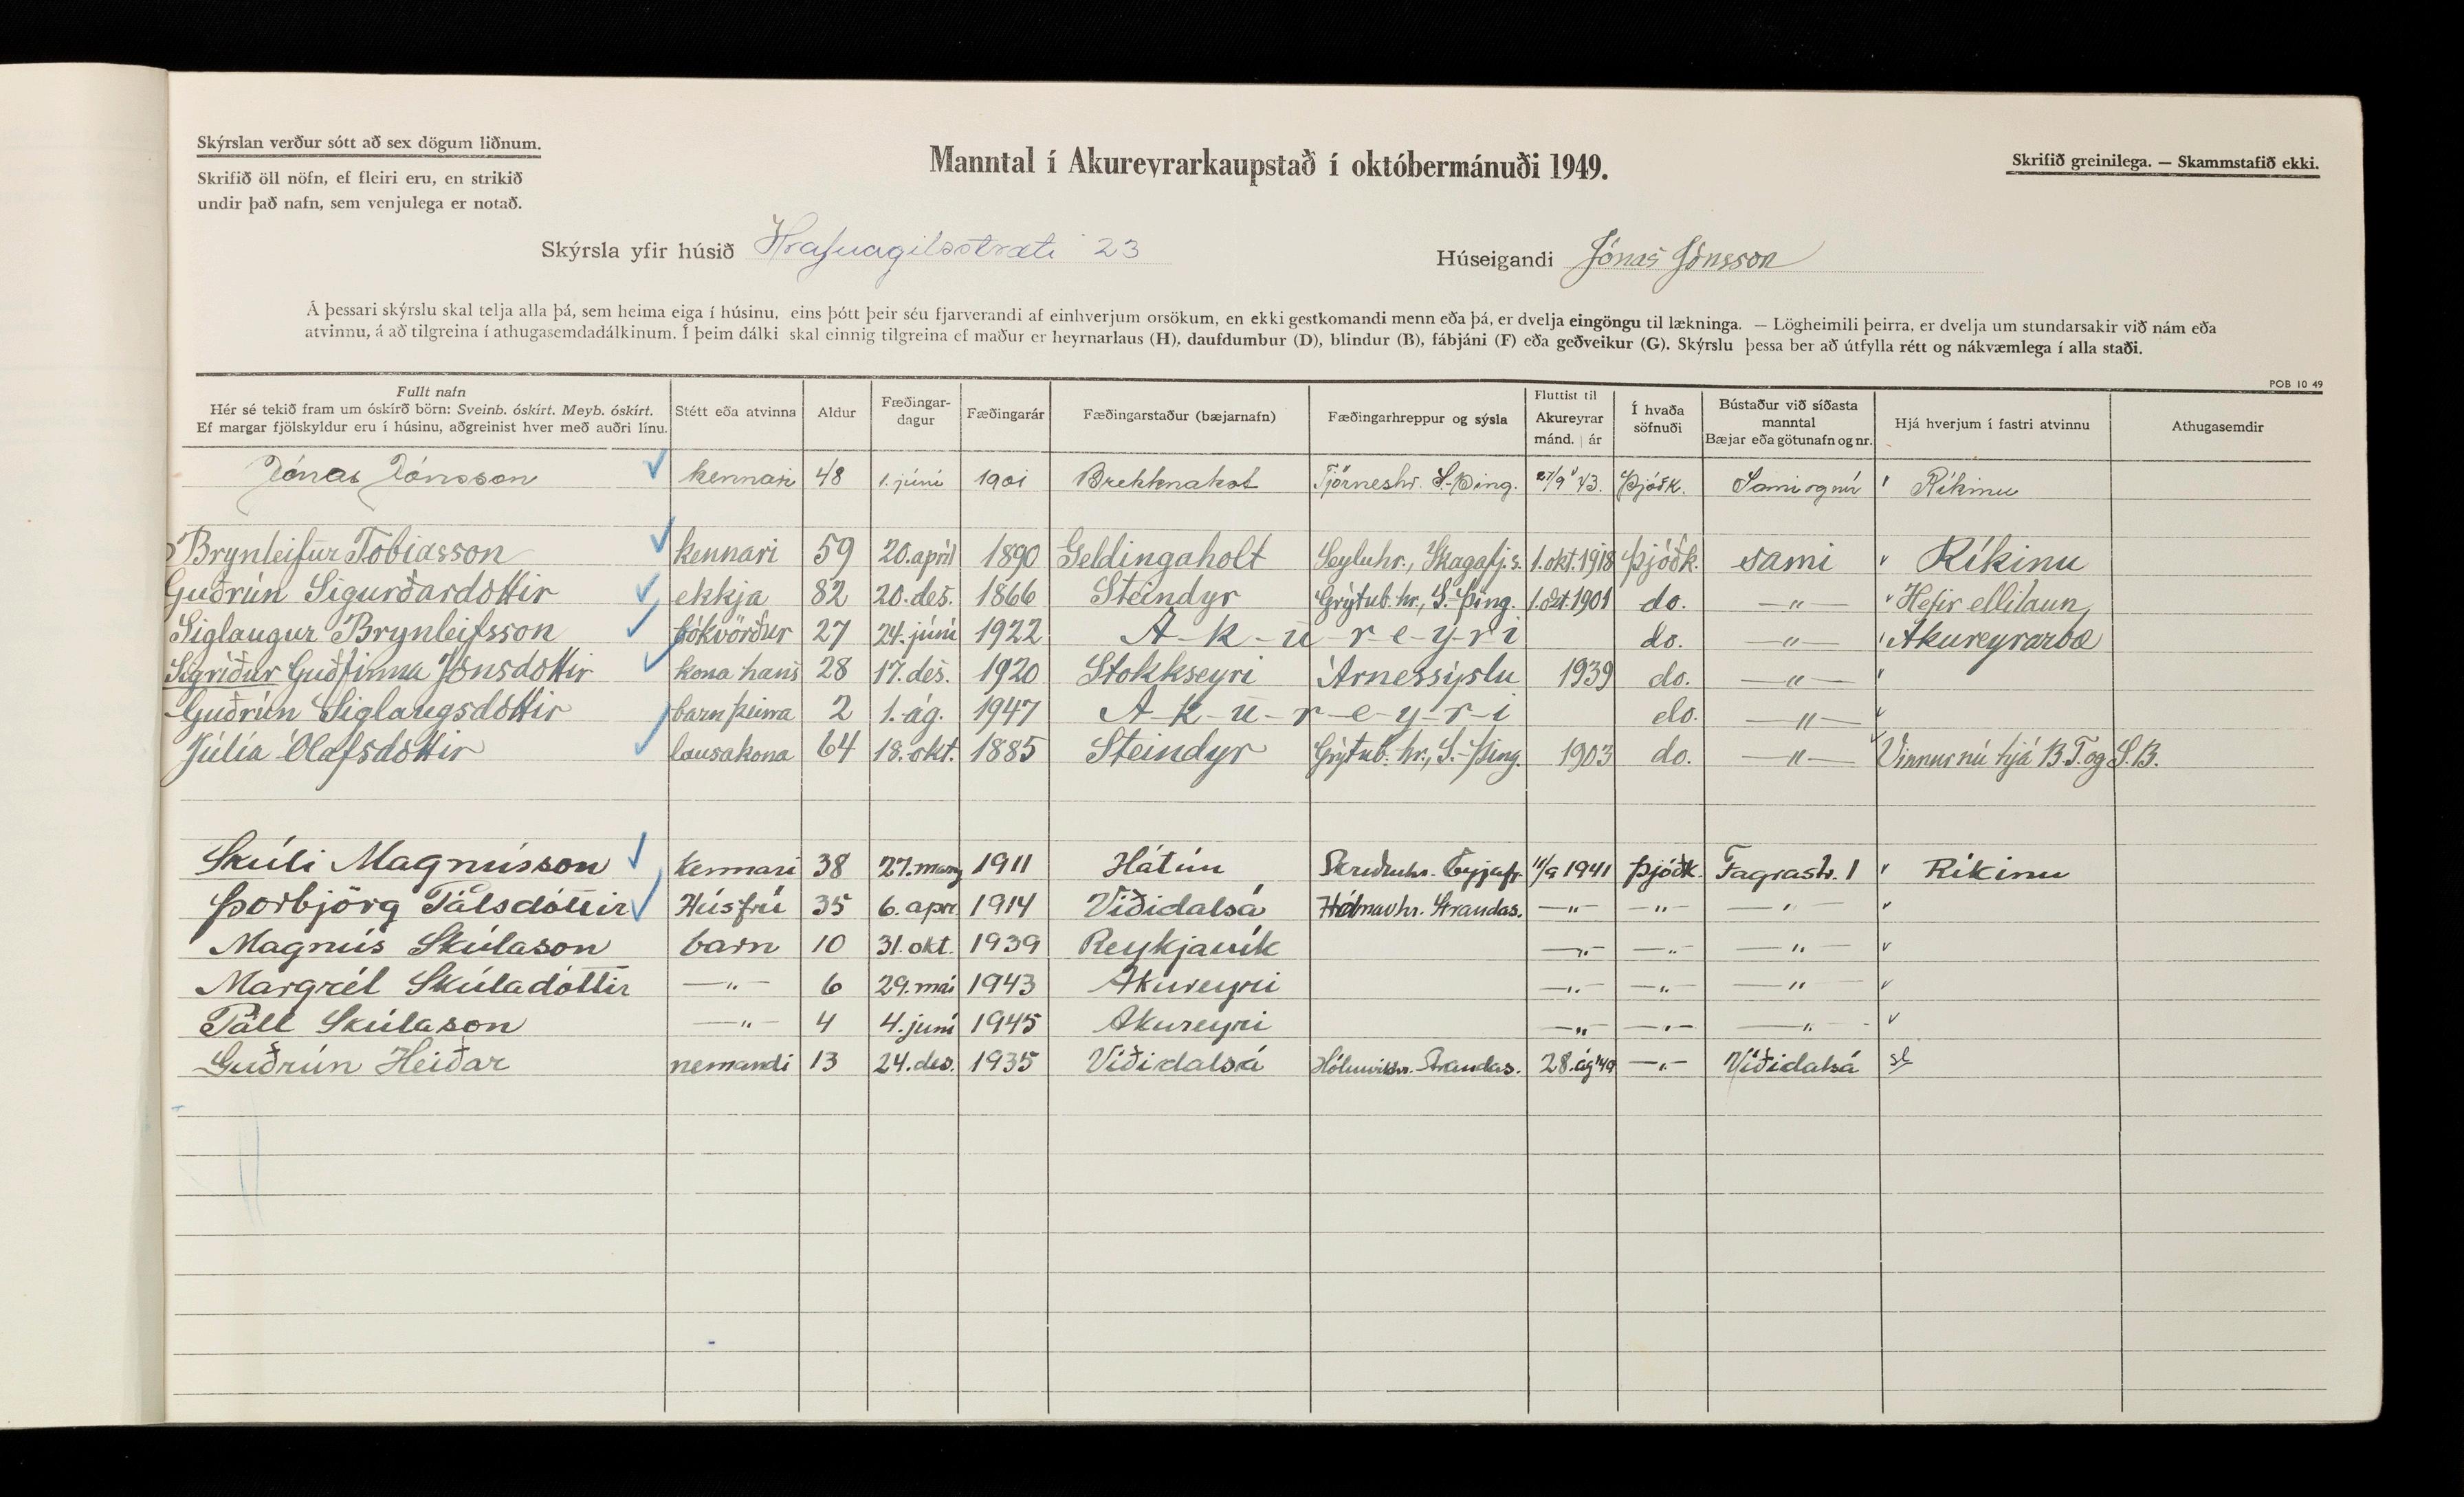 Skýrslan verður sótt að sex dögum liðnum.
Skrifið öll nöfn, ef fleiri eru, en strikið
undir það nafn, sem venjulega er notað.
Manntal í Akureyrarkaupstað í októbermánuði 1949.
Skrifið greinilega. — Skammstafið ekki.
Skýrsla yfir húsið Hrafnagilsstræti 23
Húseigandi Jónas Jónsson
Á þessari skýrslu skal telja alla þá, sem heima eiga í húsinu, eins þótt þeir séu fjarverandi af einhverjum orsökum, en ekki gestkomandi menn eða þá, er dvelja eingöngu til lækninga. — Lögheimili þeirra, er dvelja um stundarsakir við nám eða
atvinnu, á að tilgreina í athugasemdadálkinum. Í þeim dálki skal einnig tilgreina ef maður er heyrnarlaus (H), daufdumbur (D), blindur (B), fábjáni (F) eða geðveikur (G). Skýrslu þessa ber að útfylla rétt og nákvæmlega í alla staði.
POB 10 49
Fullt nafn
Hér sé tekið fram um óskírð börn: Sveinb. óskírt. Meyb. óskírt.
Ef margar fjölskyldur eru í húsinu, aðgreinist hver með auðri línu.
Stétt eða atvinna
Aldur
Fæðingar-
dagur
Fæðingarár
Fæðingarstaður (bæjarnafn)
Fæðingarhreppur og sýsla
Fluttist til
Akureyrar
mánd. | ár
Í hvaða
söfnuði
Bústaður við síðasta
manntal
Bæjar eða götunafn og nr.
Hjá hverjum í fastri atvinnu
Athugasemdir
Jónas Jónsson kennari 48 1. júní 1901 Brekknakot Tjörneshr. S.-Þing. 27/9 '43. Þjóðk. Sami og nú Ríkinu
Brynleifur Tobiasson kennari 59 20. apríl 1890 Geldingaholt Seyluhr., Skagafj.s. 1. okt. 1918 Þjóðk. sami Ríkinu
Guðrún Sigurðardóttir ekkja 82 20. des. 1866 Steindyr Grýtub. hr., S.-Þing. 1. okt. 1901 do. —"— Hefir ellilaun
Siglaugur Brynleifsson bókvörður 27 24. júní 1922 A-k-u-r-e-y-r-i do. —"— Akureyrarbæ
Sigríður Guðfinna Jónsdóttir kona hans 28 17. des. 1920 Stokkseyri Árnessýslu 1939 do. —"—
Guðrún Siglaugsdóttir barn þeirra 2 1. ág. 1947 A-k-u-r-e-y-r-i do. —"—
Júlía Ólafsdóttir lausakona 64 18. okt. 1885 Steindyr Grýtub. hr., S.-Þing. 1903 do. —"— Vinnur nú hjá B.T. og S.B.
Skúli Magnússon kennari 38 27. marz 1911 Hátún Skriðuhr. Eyjafj. 11/9 1941 Þjóðk. Fagrastr. 1 Ríkinu
Þorbjörg Pálsdóttir Húsfrú 35 6. apr 1914 Víðidalsá Hólmavhr. Strandas. —"— —"— —"—
Magnús Skúlason barn 10 31. okt. 1939 Reykjavík —"— —"— —"—
Margrét Skúladóttir —"— 6 29. maí 1943 Akureyri —"— —"— —"—
Páll Skúlason —"— 4 4. júní 1945 Akureyri —"— —"— —"—
Guðrún Heiðar nemandi 13 24. des. 1935 Víðidalsá Hólmavíkhr. Strandas. 28. ág '49 —"— Víðidalsá